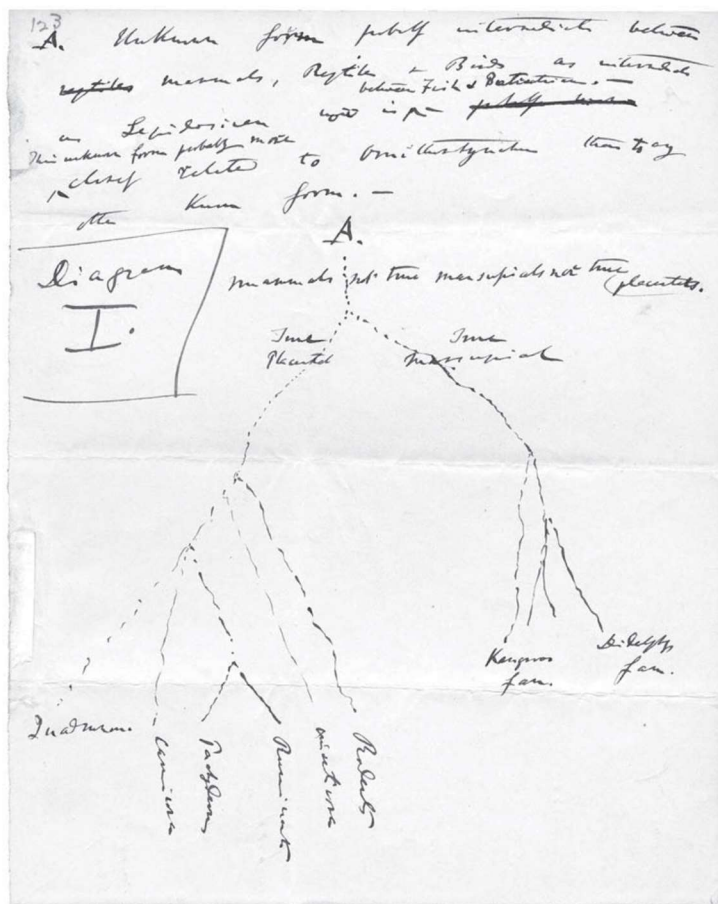 123
A. Unknown form probably intermediate between
reptiles mammals, Reptiles & Birds as intermediate
between Fish & Batrachians. —
as Lepidosiren now is
This unknown form probably more
closely related to Ornithorhynchus than to any
other known form. —
A.
Diagram
I.
mammals not true marsupials nor true placentals.
True
Placental
True
Marsupial
Kangaroo
fam.
Didelphys
fam.
Quadrum.
Carnivora
Pachyderm
Ruminants
Insectivora
Rodents